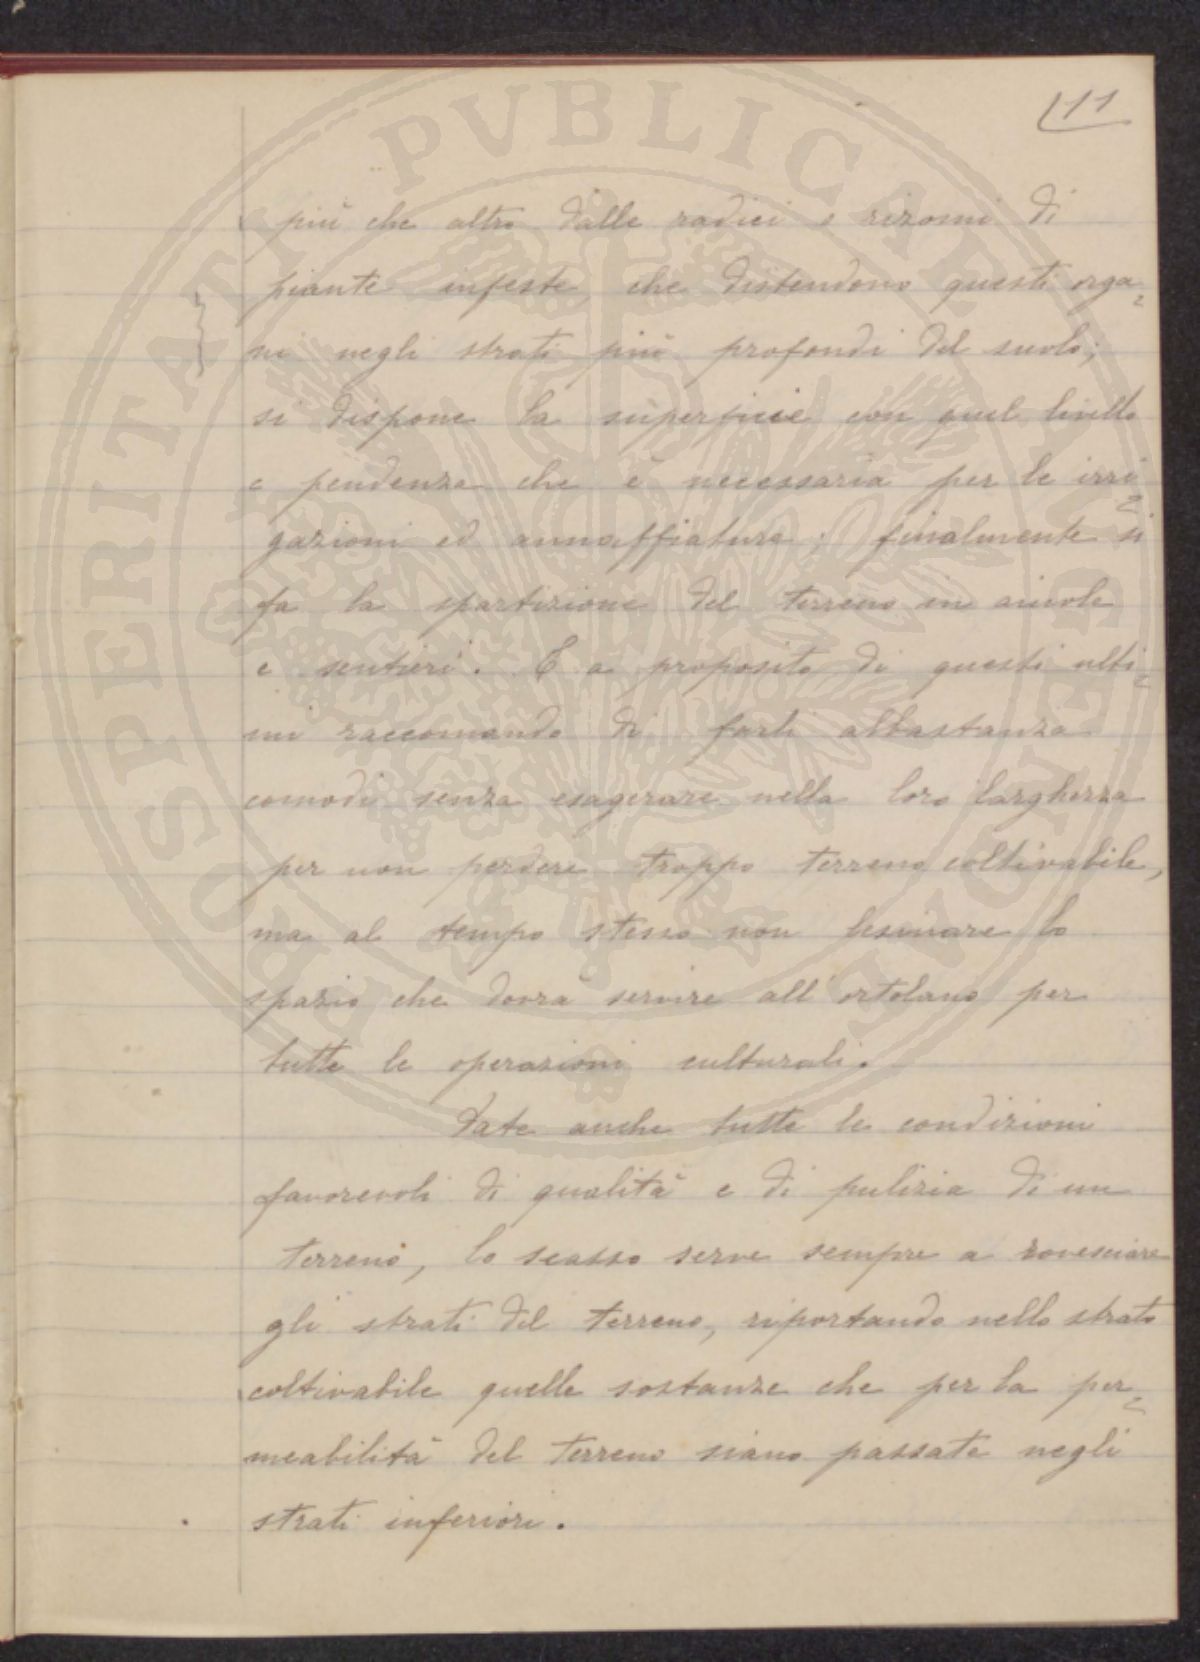 11
più che altro dalle radici e rizomi di
piante infeste, che distendono questi orga=
ni negli strati più profondi del suolo;
si dispone la superficie con quel livello
e pendenza che è necessaria per le irri=
gazioni ed annaffiature; finalmente si
fa la spartizione del terreno in aiuole
e sentieri. E a proposito di questi ulti=
mi raccomando di farli abbastanza
comodi senza esagerare nella loro larghezza
per non perdere troppo terreno coltivabile,
ma al tempo stesso non lesinare lo
spazio che dovrà servire all'ortolano per
tutte le operazioni culturali.
Date anche tutte le condizioni
favorevoli di qualità e di pulizia di un
terreno, lo scasso serve sempre a rovesciare
gli strati del terreno, riportando nello strato
coltivabile quelle sostanze che per la per=
meabilità del terreno siano passate negli
strati inferiori.
PROSPERITATI PVBLICAE